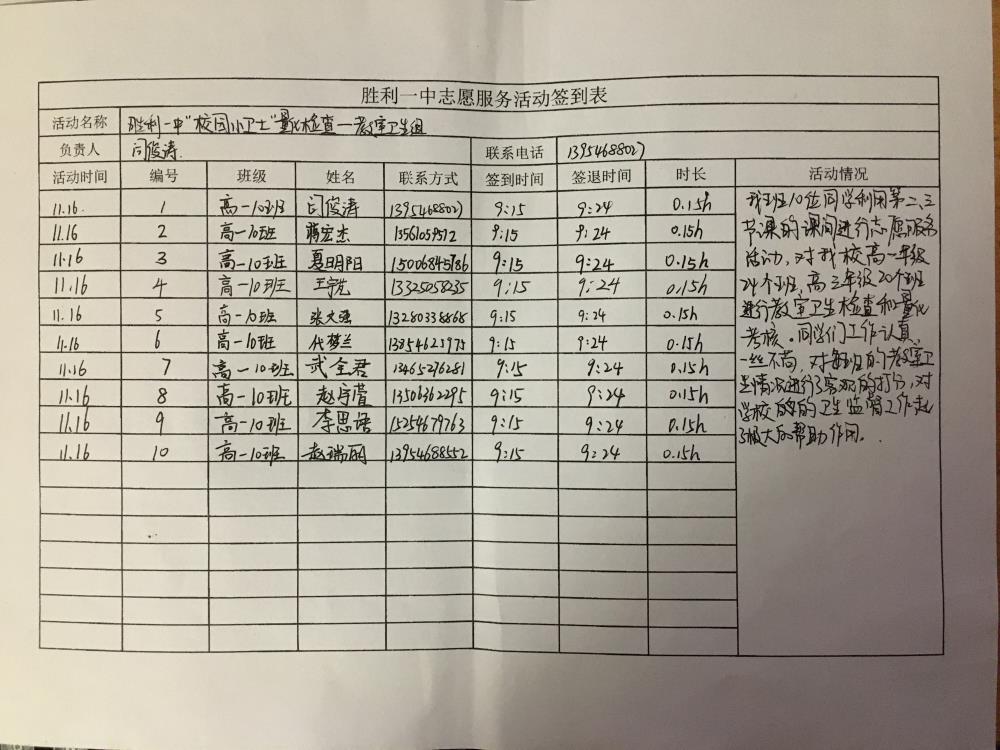 胜利一中志愿服务活动签到表
活动名称 胜利一中“校园小卫士”量化检查—教室卫生组
负责人 闫俊涛 联系电话 13954688027
活动时间 编号 班级 姓名 联系方式 签到时间 签退时间 时长 活动情况
11.16 1 高一10班 闫俊涛 13954688027 9:15 9:24 0.15h
11.16 2 高一10班 蒋宏杰 13561059572 9:15 9:24 0.15h
11.16 3 高一10班 夏明阳 15006845786 9:15 9:24 0.15h
11.16 4 高一10班 13325058235 9:15 9:24 0.15h
11.16 5 高一10班 张大强 13280338868 9:15 9:24 0.15h
11.16 6 高一10班 代梦兰 13854623975 9:15 9:24 0.15h
11.16 7 高一10班 武全君 13465276281 9:15 9:24 0.15h
11.16 8 高一10班 赵宇萱 13506362295 9:15 9:24 0.15h
11.16 9 高一10班 李思语 15254679763 9:15 9:24 0.15h
11.16 10 高一10班 赵瑞丽 13954688552 9:15 9:24 0.15h
我班10位同学利用第二、三
节课的课间进行志愿服务
活动，对我校高一年级
24个班，高三年级20个班
进行教室卫生检查和量化
考核。同学们工作认真、
一丝不苟，对每班的教室卫
生情况进行了客观的打分，对
学校的卫生监督工作起
了极大的帮助作用。